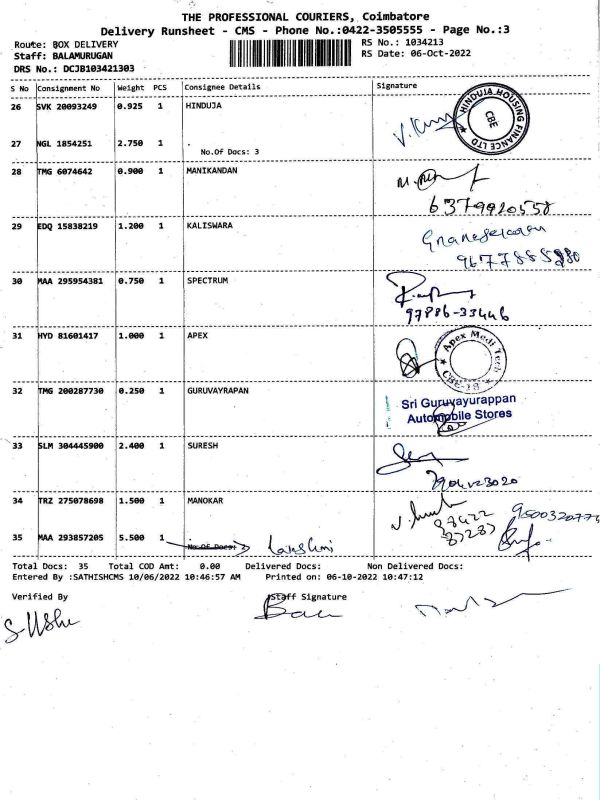 THE PROFESSIONAL COURIERS, Coimbatore
Delivery Runsheet - CMS - Phone No.:0422-3505555 - Page No.:3
Route: BOX DELIVERY RS No.: 1034213
Staff: BALAMURUGAN RS Date: 06-Oct-2022
DRS No.: DCJB103421303
S No Consignment No Weight PCS Consignee Details Signature
26 SVK 20093249 0.925 1 HINDUJA
HINDUJA HOUSING FINANCE LTD
CBE
27 NGL 1854251 2.750 1 .
No.Of Docs: 3
28 TMG 6074642 0.900 1 MANIKANDAN
6379920558
29 EDQ 15838219 1.200 1 KALISWARA
30 MAA 295954381 0.750 1 SPECTRUM
97886-33446
31 HYD 81601417 1.000 1 APEX
Apex Medi Tech
CBE-18
32 TMG 200287730 0.250 1 GURUVAYRAPAN
Sri Guruvayurappan
Automobile Stores
33 SLM 304445900 2.400 1 SURESH
34 TRZ 275078698 1.500 1 MANOKAR
35 MAA 293857205 5.500 1 .
No.Of Docs: Lakshmi
Total Docs: 35 Total COD Amt: 0.00 Delivered Docs: Non Delivered Docs:
Entered By :SATHISHCMS 10/06/2022 10:46:57 AM Printed on: 06-10-2022 10:47:12
Verified By Staff Signature